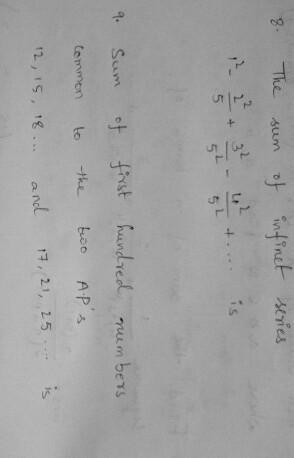 8. The sum of infinet series
1² - 2²/5 + 3²/5² - 4²/5² + .... is
9. Sum of first hundred numbers
common to the two AP's
12, 15, 18 ... and 17, 21, 25 .... is